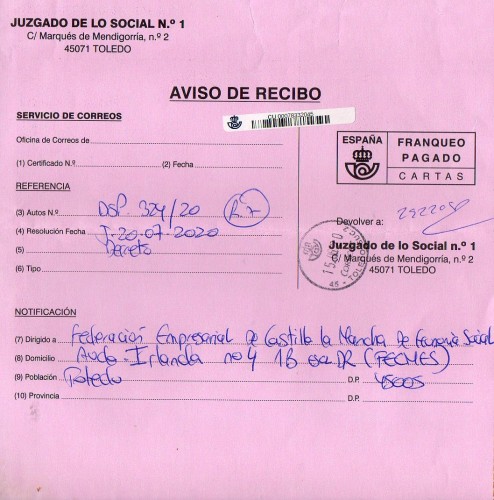 JUZGADO DE LO SOCIAL N.º 1
C/ Marqués de Mendigorría, n.º 2
45071 TOLEDO
AVISO DE RECIBO
SERVICIO DE CORREOS
Oficina de Correos de
(1) Certificado N.º (2) Fecha
ESPAÑA
FRANQUEO
PAGADO
CARTAS
REFERENCIA
(3) Autos N.º DSP. 324/20
(4) Resolución Fecha J-20-07-2020
(5) Decreto
(6) Tipo
Devolver a:
Juzgado de lo Social n.º 1
C/ Marqués de Mendigorría, n.º 2
45071 TOLEDO
NOTIFICACIÓN
(7) Dirigido a Federación Empresarial de Castilla la Mancha de Economía Social
(8) Domicilio Avda. Irlanda nº 4 1B esc DR (FECMES)
(9) Población Toledo D.P. 45005
(10) Provincia D.P.